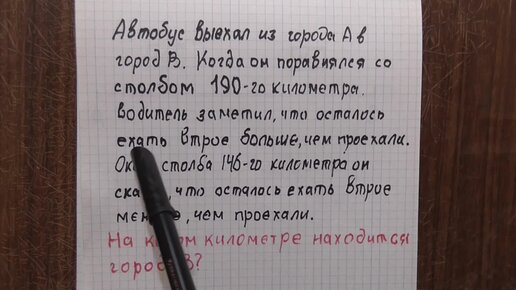 Автобус выехал из города А в
город В. Когда он поравнялся со
столбом 190-го километра.
водитель заметил, что осталось
ехать втрое больше, чем проехали.
столба 146-го километра он
что осталось ехать втрое
чем проехали.
На километре находится
В?